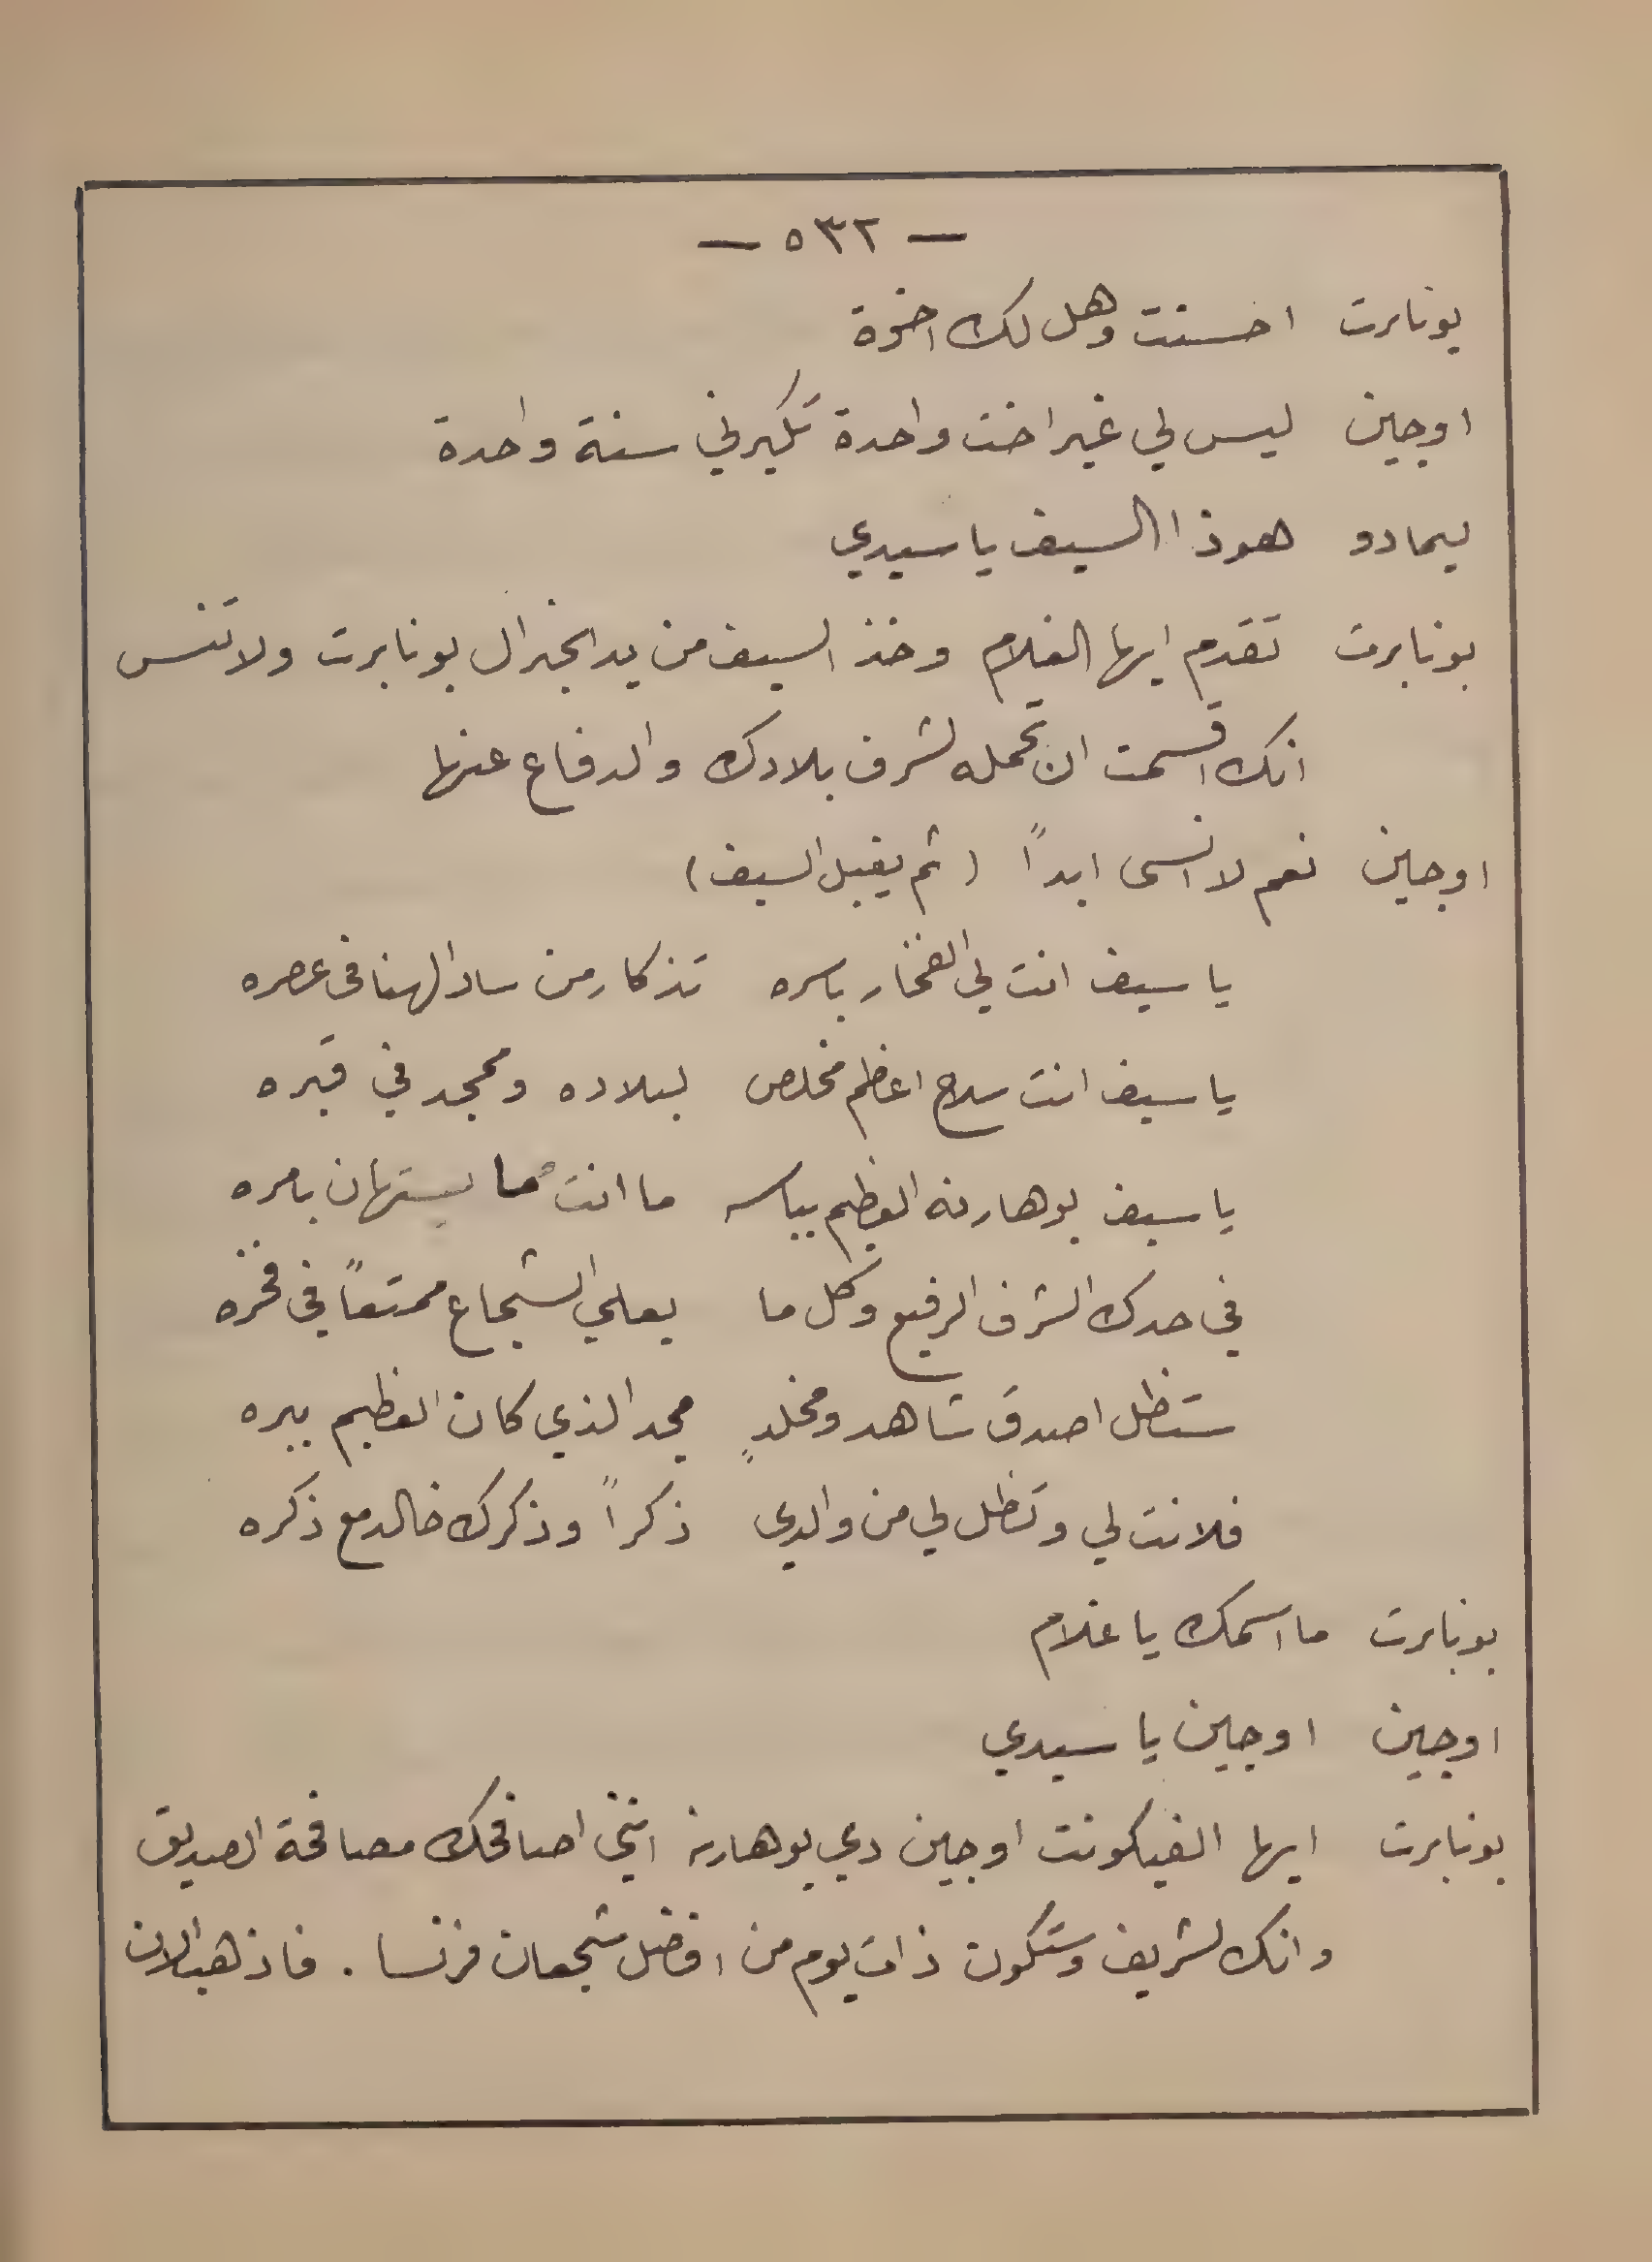 — ٥٣٢ —
بونابرت احسنت وهل لك اخوة
اوجين ليس لي غير اخت واحدة تكبرني سنة واحدة
ليمادو هوذا السيف يا سيدي
بونابرت تقدم ايها الغلام وخذ السيف من يد الجنرال بونابرت ولا تنس
انك اقسمت ان تحمله لشرف بلادك والدفاع عنها
اوجين نعم لا انسى ابداً (ثم يقبل السيف)
يا سيف انت لي الفخار باسره تذكار من ساد الهنا في عصره
يا سيف انت سلاح اعظم مخلص لبلاده وممجد في قبره
يا سيف بوهارنه العظيم بباسه ما انت مما يستهان بامره
في حدك الشرف الرفيع وكل ما يعلي الشجاع ممتعاً في فخره
ستظل اصدق شاهد ومخلدٍ مجد الذي كان العظيم ببره
فلانت لي وتظل لي من والدي ذكراً وذكرك خالد مع ذكره
بونابرت ما اسمك يا غلام
اوجين اوجين يا سيدي
بونابرت ايها الفيكونت اوجين دي بوهارنه انني اصافحك مصافحة الصديق
وانك لشريف وستكون ذات يوم من افضل شجعان فرنسا . فاذهب الان